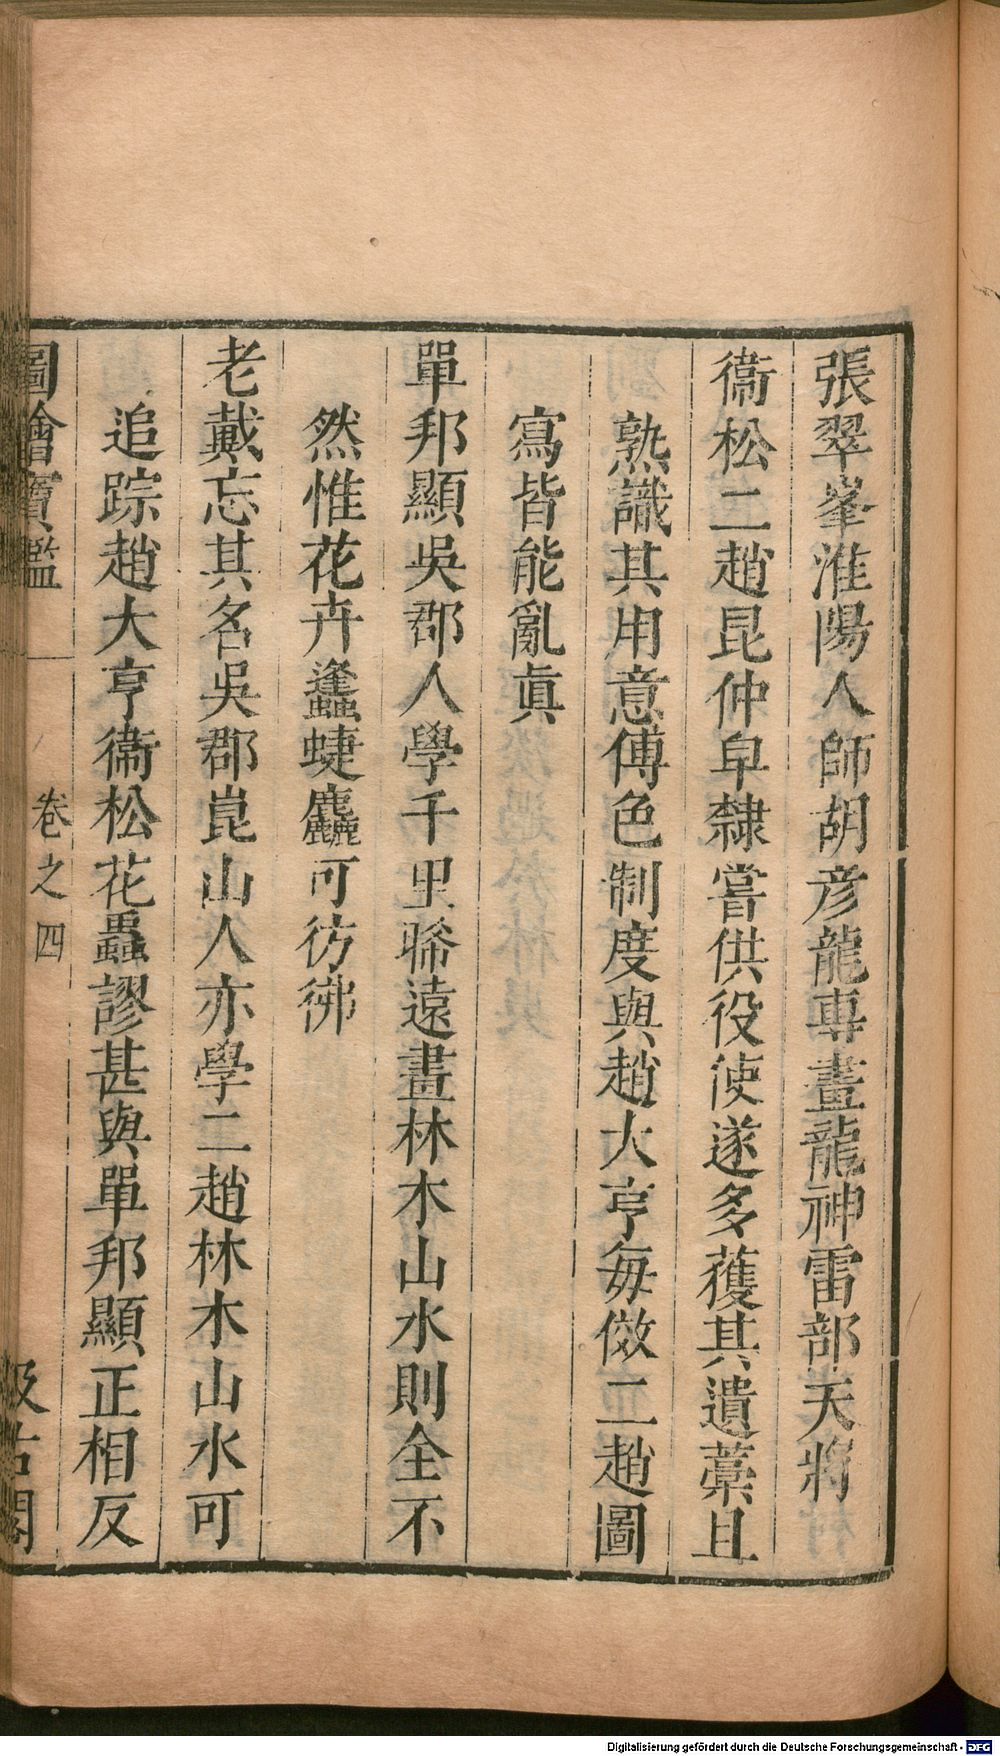 張翠峯淮陽人師胡彦龍専畫龍神雷部天將
衞松二趙昆仲皁隸嘗供役使遂多獲其遺藁且
熟識其用意傅色制度與趙大亨每倣二趙圖
寫皆能亂眞
單邦顯吳郡人學千里晞遠畫林木山水則全不
然惟花卉蠭蜨麤可彷彿
老戴忘其名吳郡崑山人亦學二趙林木山水可
追踪趙大亨衞松花蟲謬甚與單邦顯正相反
圖繪寶鑑
卷之四
汲古閣
Digitalisierung gefördert durch die Deutsche Forschungsgemeinschaft - DFG